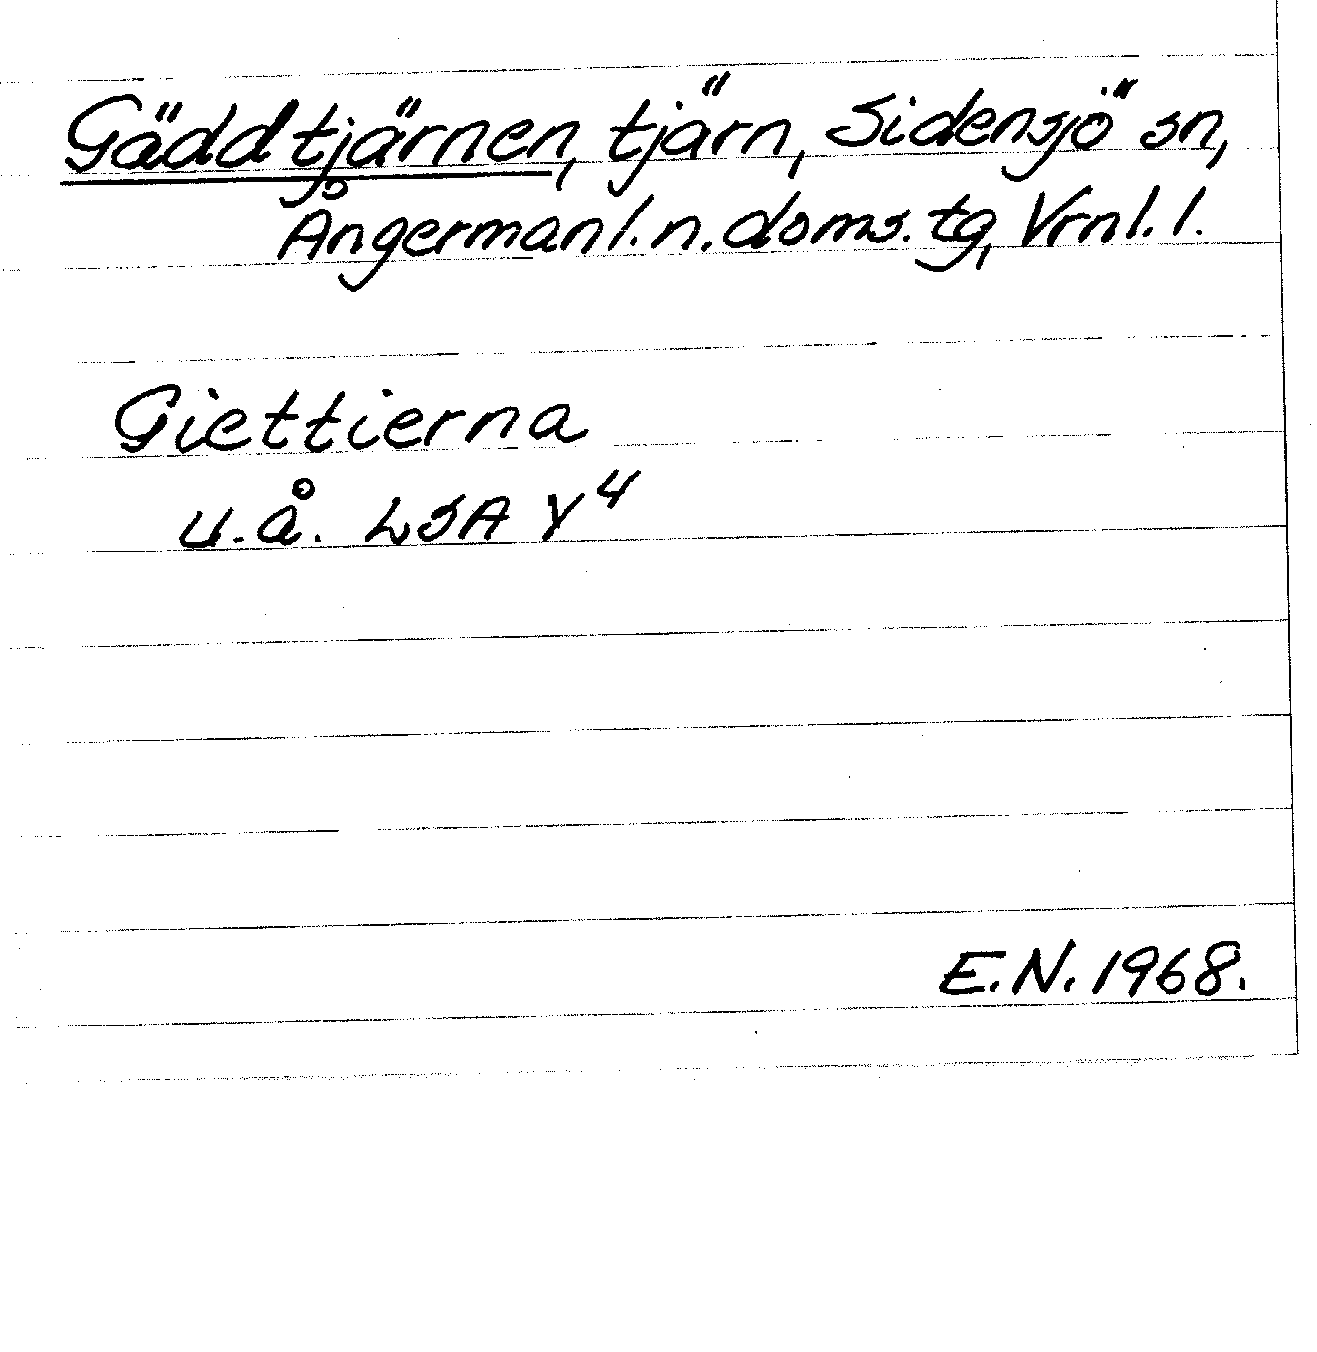 Gäddtjärnen, tjärn, Sidensjö sn,
Ångermanl. n. doms. tg, Vrnl. l.
Giettierna
u.å. LSA Y4
E.N. 1968.